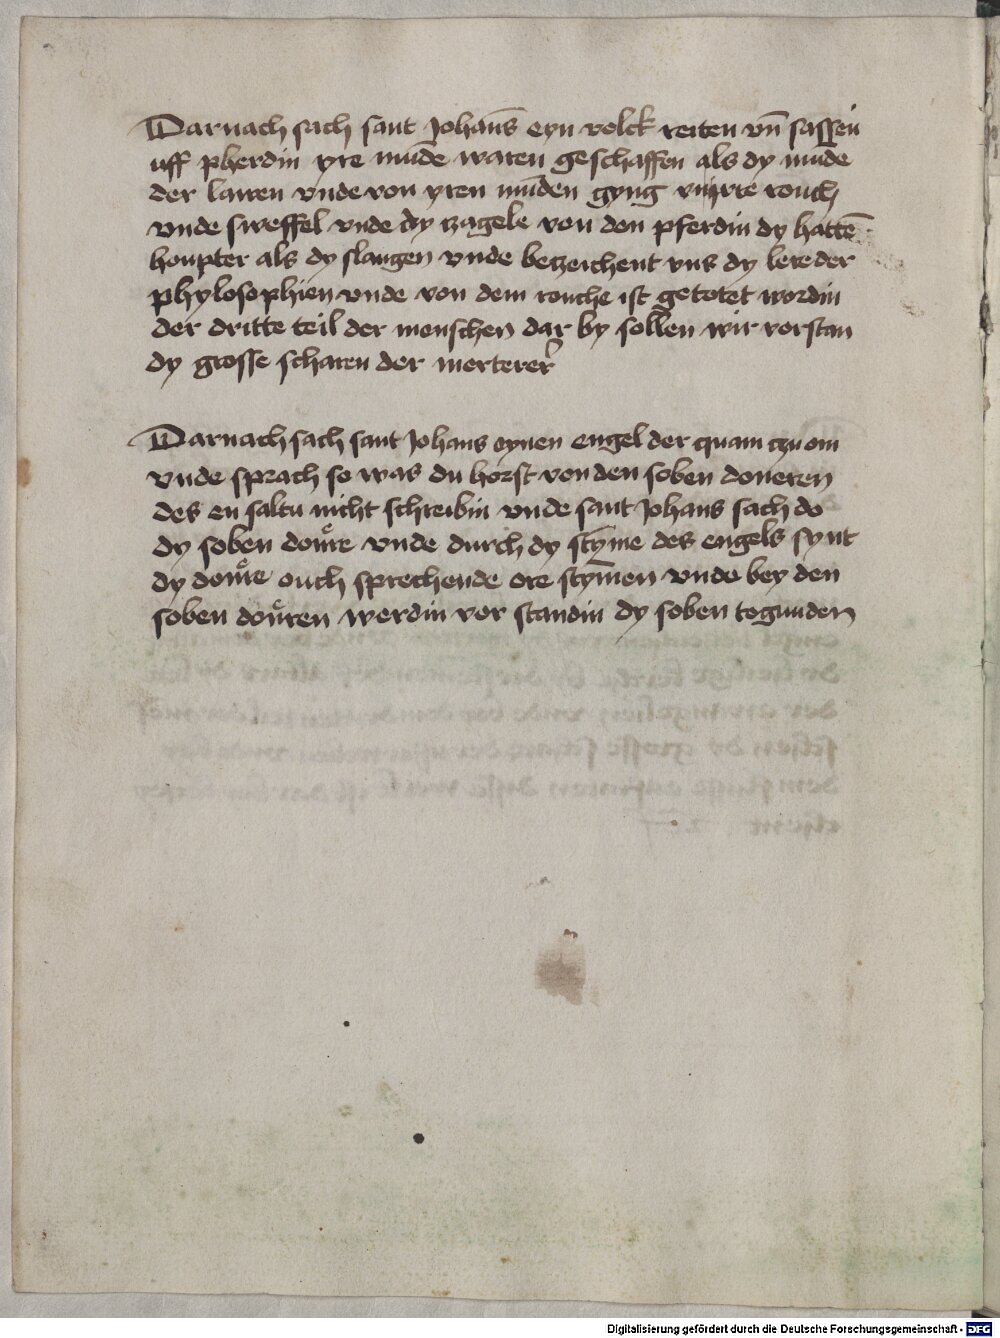 Darnach sach sant Johañs eyn volck reiten vn̄ sassen
uff pherdin yre mūde waren geschaffen als dy mūde
der lawen vnde von yren mūden gyng vūyrte rouch
vnde sweffel vnde dy czagele von den pferdin dy hattē
houpter als dy slangen vnde betzeichent vns dy lere der
phylosophien vnde von dem rouche ist getotet wordin
der dritte teil der menschen dar by sollen wir vorstan
dy grosse scharen der merterer
Darnach sach sant Johans eynen engel der quam czu om
vnde sprach so was du horst von den soben doneren
des en saltu nicht schreibin vnde sant Johans sach do
dy soben donre vnde durch dy stȳme des engels synt
dy donre ouch sprechende ore stȳmen vnde bey den
soben donren werdin vor standin dy soben togunden
Digitalisierung gefördert durch die Deutsche Forschungsgemeinschaft - DFG